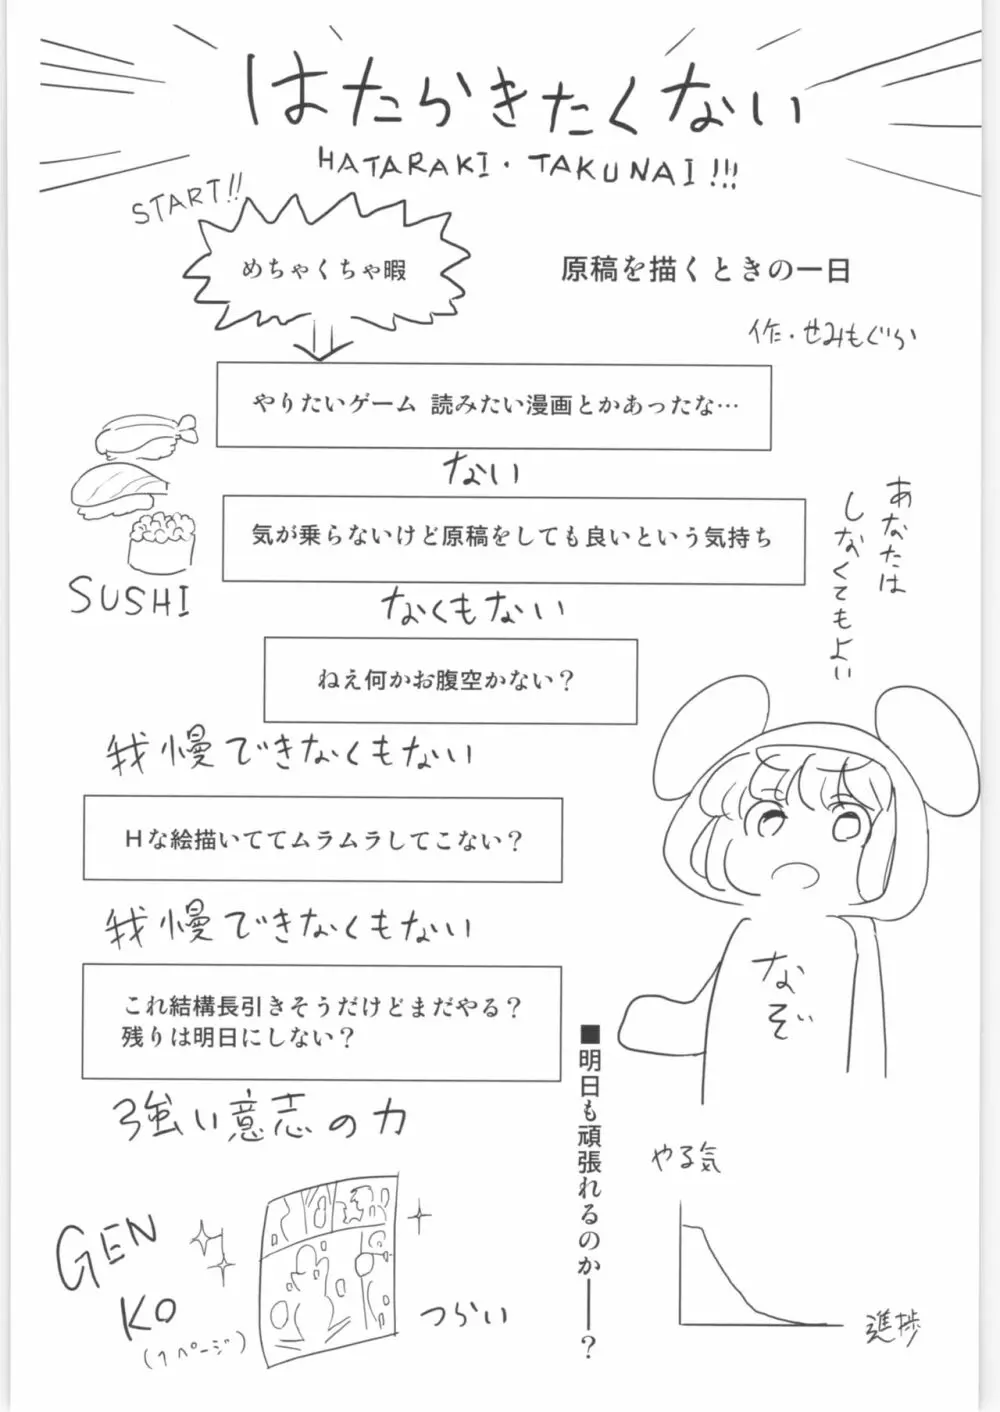 はたらきたくない
HATARAKI・TAKUNAI!!!
START!!
めちゃくちゃ暇
原稿を描くときの一日
作・せみもぐら
やりたいゲーム 読みたい漫画とかあったな…
ない
気が乗らないけど原稿をしても良いという気持ち
SUSHI
なくもない
あなたは
しなくてもよい
ねえ何かお腹空かない？
我慢できなくもない
Hな絵描いててムラムラしてこない？
我慢できなくもない
なぞ
これ結構長引きそうだけどまだやる？
残りは明日にしない？
強い意志の力
■明日も頑張れるのか――？
やる気
進捗
GEN
KO
(1ページ)
つらい